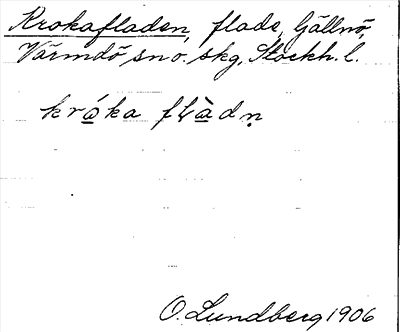 Krokafladen, flade, Gällnö,
Värmdö sno. skg, Stockh. l.
kråka fɫàdṇ
O. Lundberg 1906